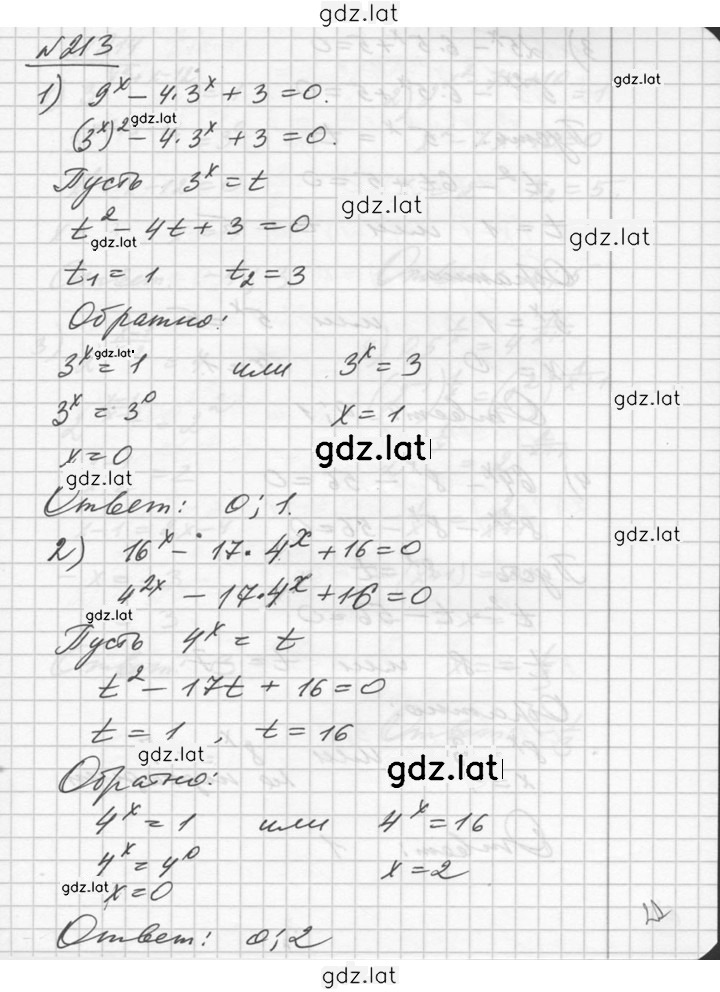 gdz.lat
№213
gdz.lat
1) 9^x - 4·3^x + 3 = 0.
gdz.lat
(3^x)^2 - 4·3^x + 3 = 0.
Пусть 3^x = t
gdz.lat
t^2 - 4t + 3 = 0
gdz.lat
gdz.lat
t₁ = 1 t₂ = 3
Обратно:
gdz.lat
3^x = 1 или 3^x = 3
3^x = 3^0 x = 1
gdz.lat
x = 0 gdz.lat
gdz.lat
Ответ: 0; 1.
2) 16^x - 17·4^x + 16 = 0
gdz.lat
4^2x - 17·4^x + 16 = 0
gdz.lat
Пусть 4^x = t
t^2 - 17t + 16 = 0
t = 1, t = 16
gdz.lat
Обратно: gdz.lat
4^x = 1 или 4^x = 16
4^x = 4^0 x = 2
gdz.lat
x = 0
Ответ: 0; 2
gdz.lat